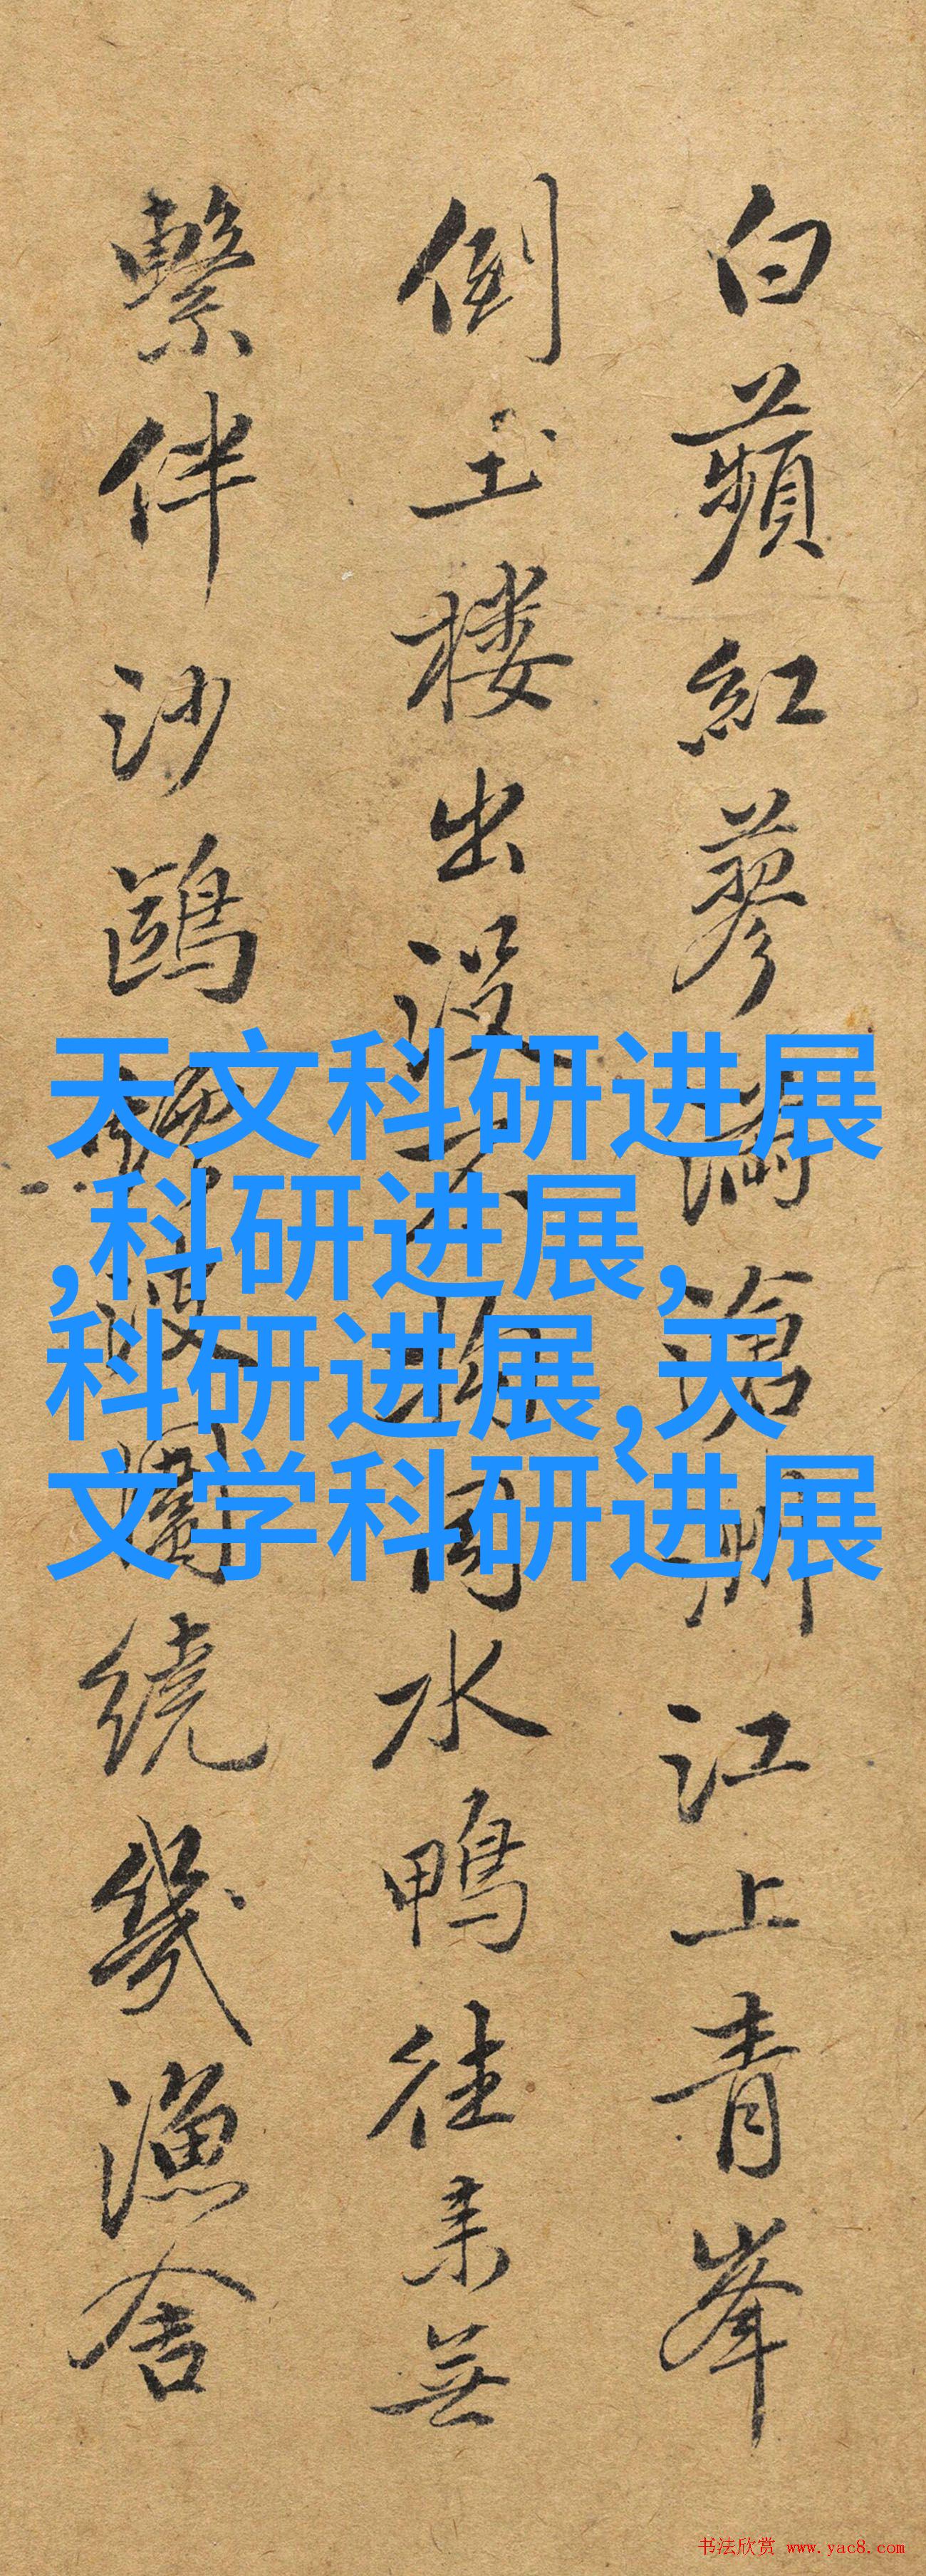 白蘋紅蓼滿滄江上青峯
倒玉楼出沒同水鴨往来無
繫伴沙鷗繞幾漁舍
天文科研进展
,科研进展,
科研进展,天
文学科研进展
书法欣赏 www.yac8.com